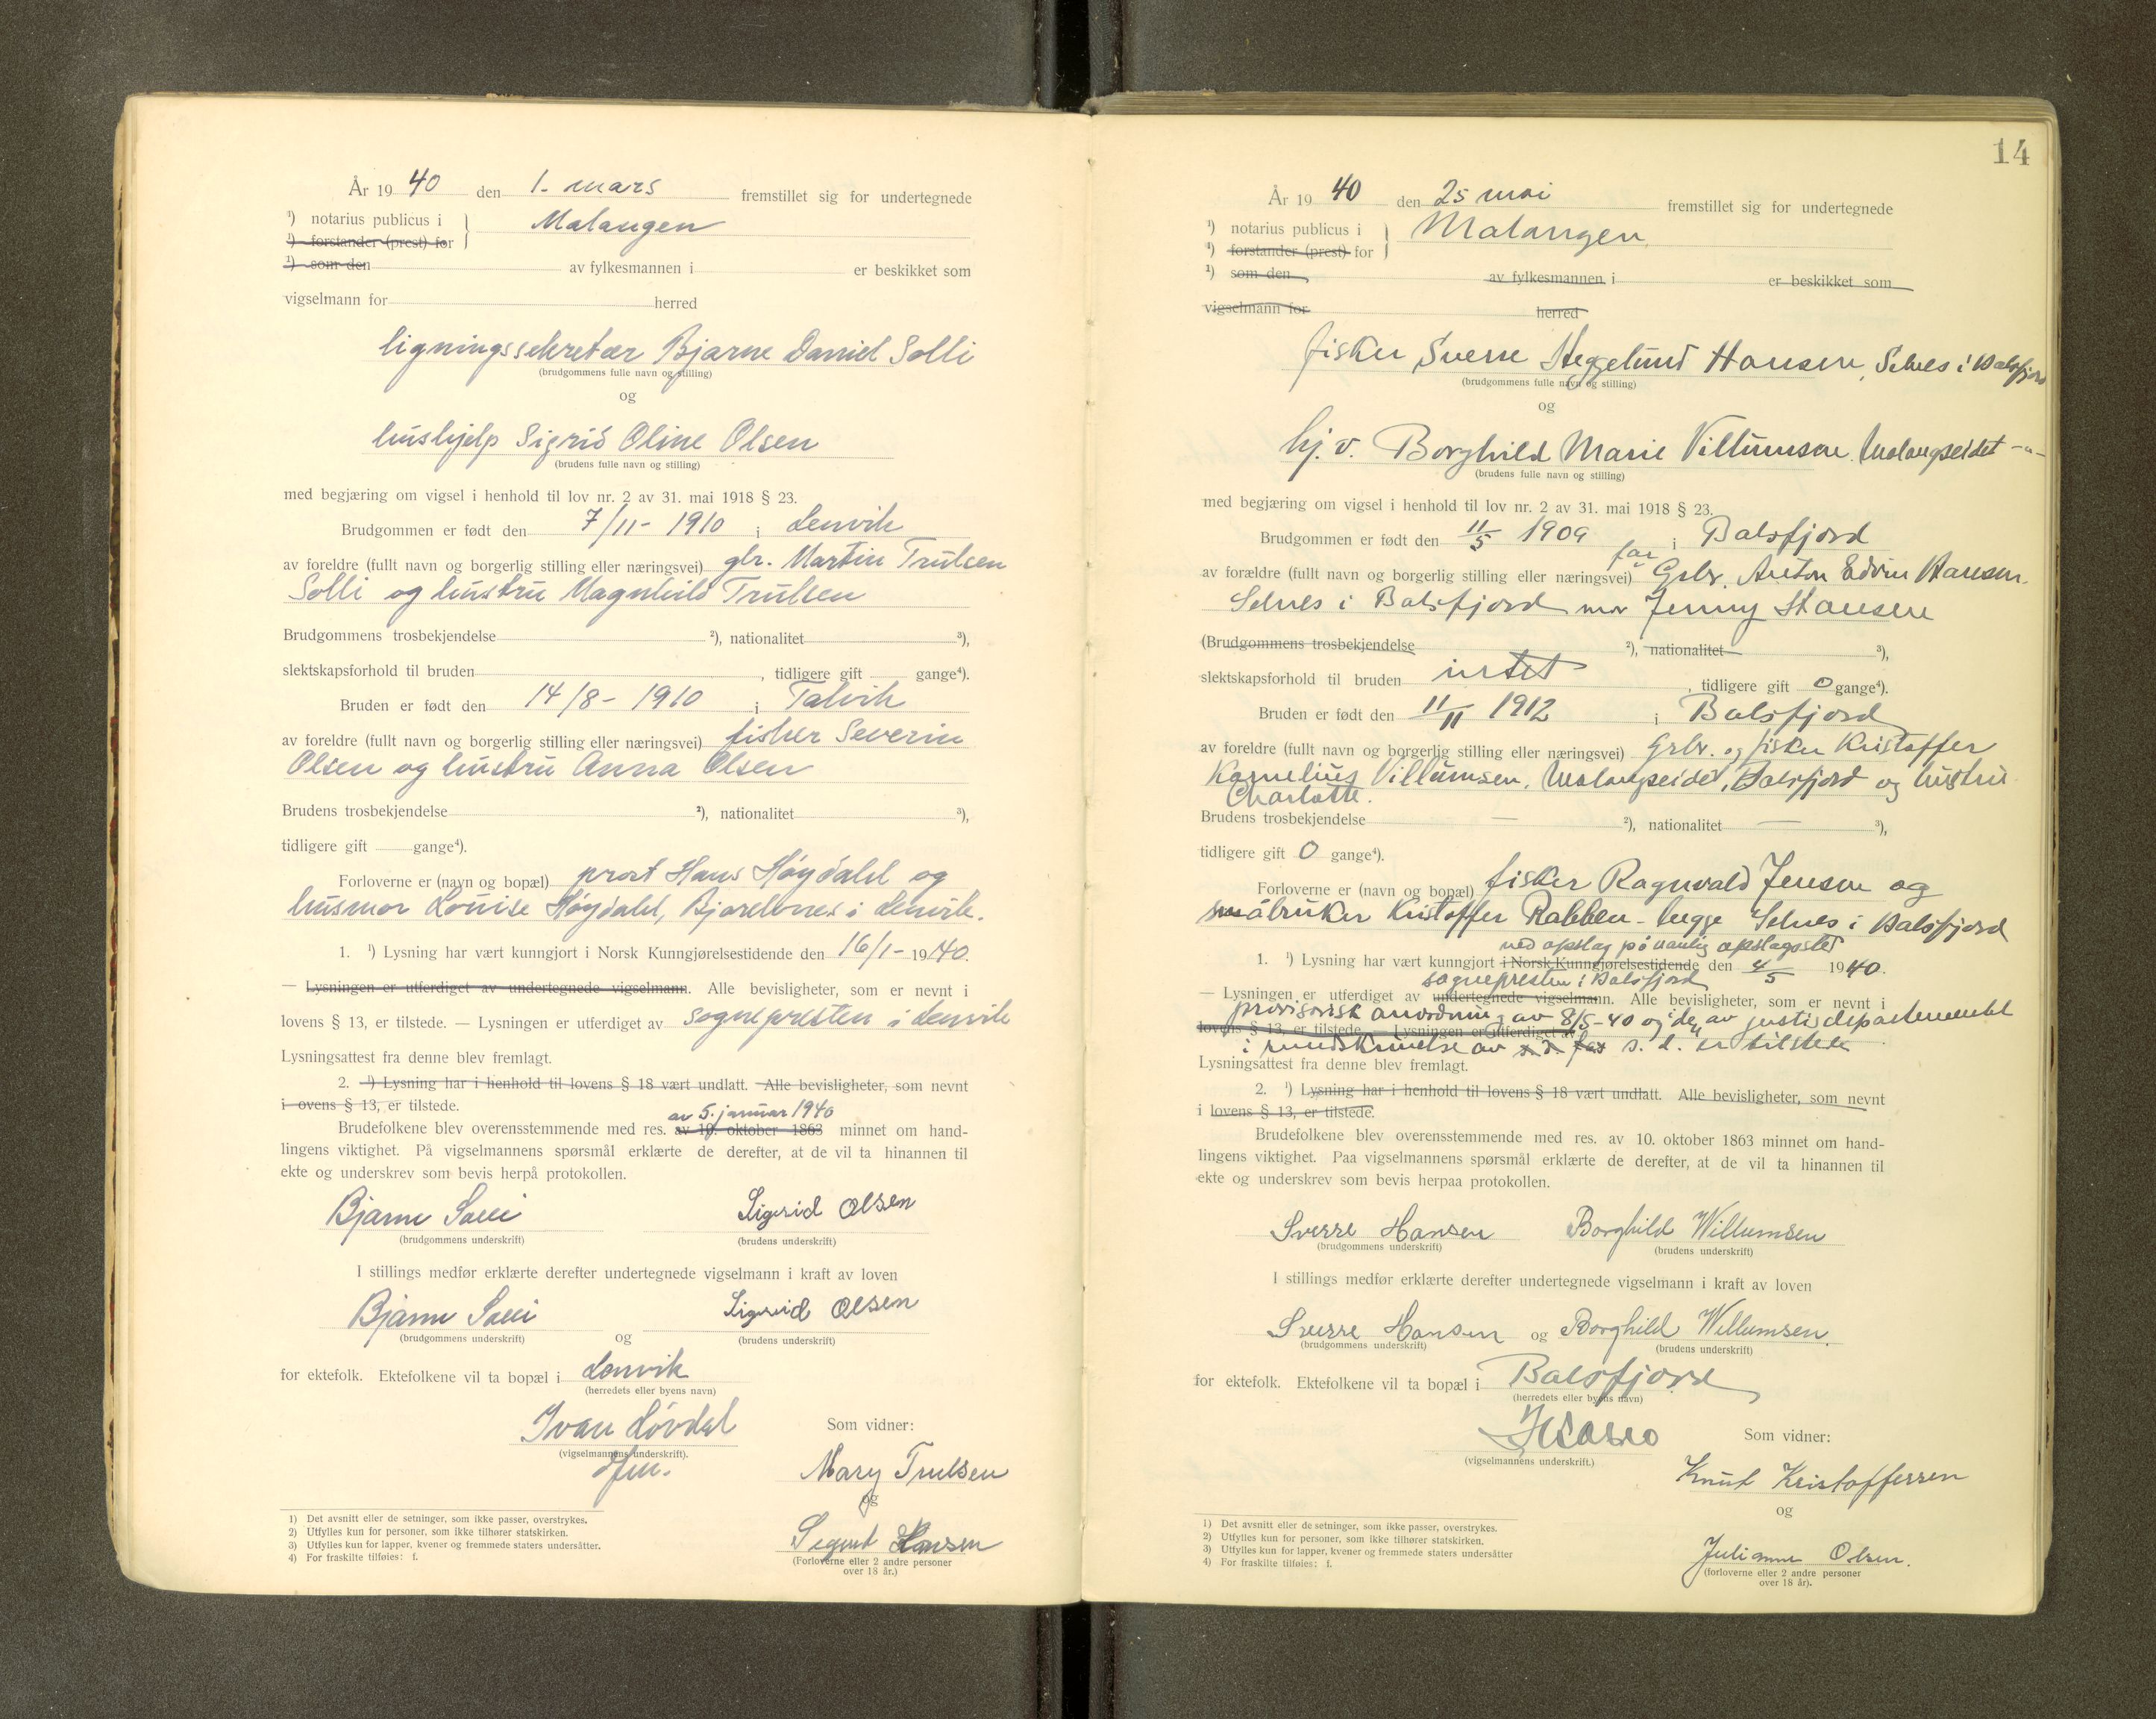 År 19 40 den 1. mars fremstillet sig for undertegnede
¹) notarius publicus i } Malangen
¹) forstander (prest) for
¹) som den av fylkesmannen i er beskikket som
vigselmann for herred
ligningssekretær Bjarne Daniel Solli
(brudgommens fulle navn og stilling)
og
hushjelp Sigrid Oline Olsen
(brudens fulle navn og stilling)
med begjæring om vigsel i henhold til lov nr. 2 av 31. mai 1918 § 23.
Brudgommen er født den 7/11 - 1910 i Lenvik
av foreldre (fullt navn og borgerlig stilling eller næringsvei) gbr. Martin Trulsen
Solli og hustru Magnhild Trulsen
Brudgommens trosbekjendelse ²), nationalitet ³),
slektskapsforhold til bruden , tidligere gift gange⁴).
Bruden er født den 14/8 - 1910 i Talvik
av foreldre (fullt navn og borgerlig stilling eller næringsvei) fisker Severin
Olsen og hustru Anna Olsen
Brudens trosbekjendelse ²), nationalitet ³),
tidligere gift gange⁴).
Forloverne er (navn og bopæl) prost Hans Høydahl og
husmor Louise Høydahl, Bjorelvnes i Lenvik.
1. ¹) Lysning har vært kunngjort i Norsk Kunngjørelsestidende den 16/1 - 1940.
— Lysningen er utferdiget av undertegnede vigselmann. Alle bevisligheter, som er nevnt i
lovens § 13, er tilstede. — Lysningen er utferdiget av sognepresten i Lenvik
Lysningsattest fra denne blev fremlagt.
2. ¹) Lysning har i henhold til lovens § 18 vært undlatt. Alle bevisligheter, som nevnt
i ovens § 13, er tilstede.
av 5. januar 1940
Brudefolkene blev overensstemmende med res. av 10. oktober 1863 minnet om hand-
lingens viktighet. På vigselmannens spørsmål erklærte de derefter, at de vil ta hinannen til
ekte og underskrev som bevis herpå protokollen.
Bjarne Solli Sigrid Olsen
(brudgommens underskrift) (brudens underskrift)
I stillings medfør erklærte derefter undertegnede vigselmann i kraft av loven
Bjarne Solli Sigrid Olsen
(brudgommens underskrift) og (brudens underskrift)
for ektefolk. Ektefolkene vil ta bopæl i Lenvik
(herredets eller byens navn)
Ivan Løvdal Som vidner:
(vigselmannens underskrift).
Mary Trulsen
og
Sigurd Hansen
(Forloverne eller 2 andre personer
over 18 år.)
1) Det avsnitt eller de setninger, som ikke passer, overstrykes.
2) Utfylles kun for personer, som ikke tilhører statskirken.
3) Utfylles kun for lapper, kvener og fremmede staters undersåtter.
4) For fraskilte tilføies: f.
14
År 19 40 den 25 mai fremstillet sig for undertegnede
¹) notarius publicus i } Malangen
¹) forstander (prest) for
¹) som den av fylkesmannen i er beskikket som
vigselmann for herred
fisker Sverre Heggelund Hansen, Selnes i Balsfjord
(brudgommens fulle navn og stilling)
og
hj. v. Borghild Marie Villumsen. Malangseidet -"-
(brudens fulle navn og stilling)
med begjæring om vigsel i henhold til lov nr. 2 av 31. mai 1918 § 23.
Brudgommen er født den 11/5 1909 i Balsfjord
far
av forældre (fullt navn og borgerlig stilling eller næringsvei) Grbr. Anton Edvin Hansen.
Selnes i Balsfjord mor Jenny Hansen
(Brudgommens trosbekjendelse ²), nationalitet ³),
slektskapsforhold til bruden intet , tidligere gift 0 gange⁴).
Bruden er født den 11/11 1912 i Balsfjord
av foreldre (fullt navn og borgerlig stilling eller næringsvei) Grbr. og fisker Kristoffer
Kornelius Villumsen, Malangseidet, Balsfjord og hustru
Charlotte.
Brudens trosbekjendelse — ²), nationalitet — ³),
tidligere gift 0 gange⁴).
Forloverne er (navn og bopæl) fisker Ragnvald Jensen og
småbruker Kristoffer Rabben - begge Selnes i Balsfjord
ved opslag på vanlig opslagssted
1. ¹) Lysning har vært kunngjort i Norsk Kunngjørelsestidende den 4/5 1940.
sognepresten i Balsfjord
— Lysningen er utferdiget av undertegnede vigselmann. Alle bevisligheter, som er nevnt i
provisorisk anordning av 8/5-40 og i den av justisdepartementet
lovens § 13, er tilstede. — Lysningen er utferdiget av
i rundskrivelse av s. d. er tilstede
Lysningsattest fra denne blev fremlagt.
2. ¹) Lysning har i henhold til lovens § 18 vært undlatt. Alle bevisligheter, som nevnt
i lovens § 13, er tilstede.
Brudefolkene blev overensstemmende med res. av 10. oktober 1863 minnet om hand-
lingens viktighet. Paa vigselmannens spørsmål erklærte de derefter, at de vil ta hinannen til
ekte og underskrev som bevis herpaa protokollen.
Sverre Hansen Borghild Willumsen
(brudgommens underskrift) (brudens underskrift)
I stillings medfør erklærte derefter undertegnede vigselmann i kraft av loven
Sverre Hansen og Borghild Willumsen.
(brudgommens underskrift) (brudens underskrift)
for ektefolk. Ektefolkene vil ta bopæl i Balsfjord
(herredets eller byens navn)
Som vidner:
(vigselmannens underskrift.)
Knut Kristoffersen
og
Julianne Olsen.
(forloverne eller 2 andre personer
over 18 år).
1) Det avsnitt eller de setninger, som ikke passer, overstrykes.
2) Utfylles kun for personer, som ikke tilhører statskirken.
3) Utfylles kun for lapper, kvener og fremmede staters undersåtter
4) For fraskilte tilføies: f.